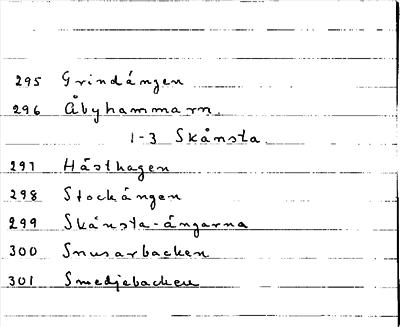 295 Grindängen
296 Åbyhammarn
1-3 Skånsta
297 Hästhagen
298 Stockängen
299 Skånsta-ängarna
300 Snusarbacken
301 Smedjebacken